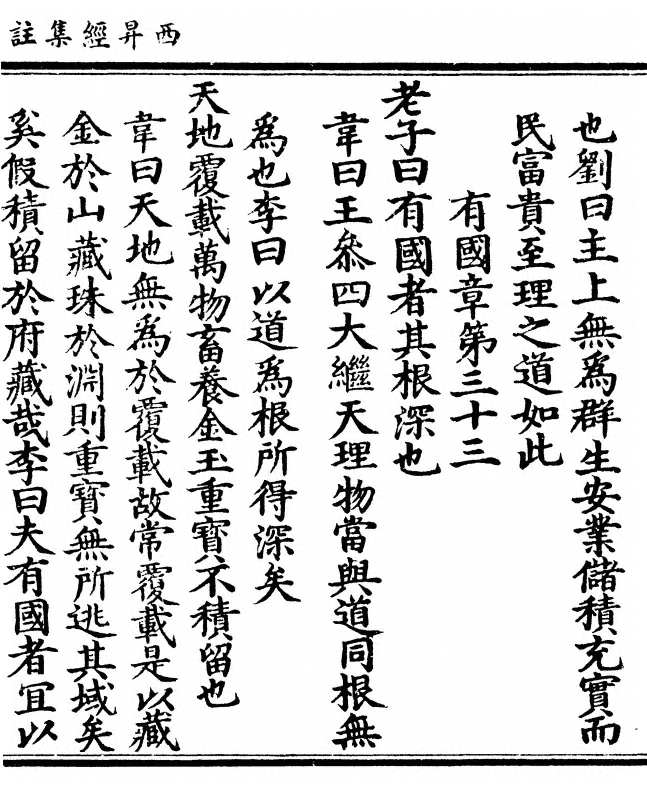 西昇經集註
也劉曰主上無爲群生安業儲積充實而
民富貴至理之道如此
有國章第三十三
老子曰有國者其根深也
韋曰王叅四大繼天理物當與道同根無
爲也李曰以道爲根所得深矣
天地覆載萬物畜養金玉重寶不積留也
韋曰天地無爲於覆載故常覆載是以藏
金於山藏珠於淵則重寶無所逃其域矣
奚假積留於府藏哉李曰夫有國者冝以